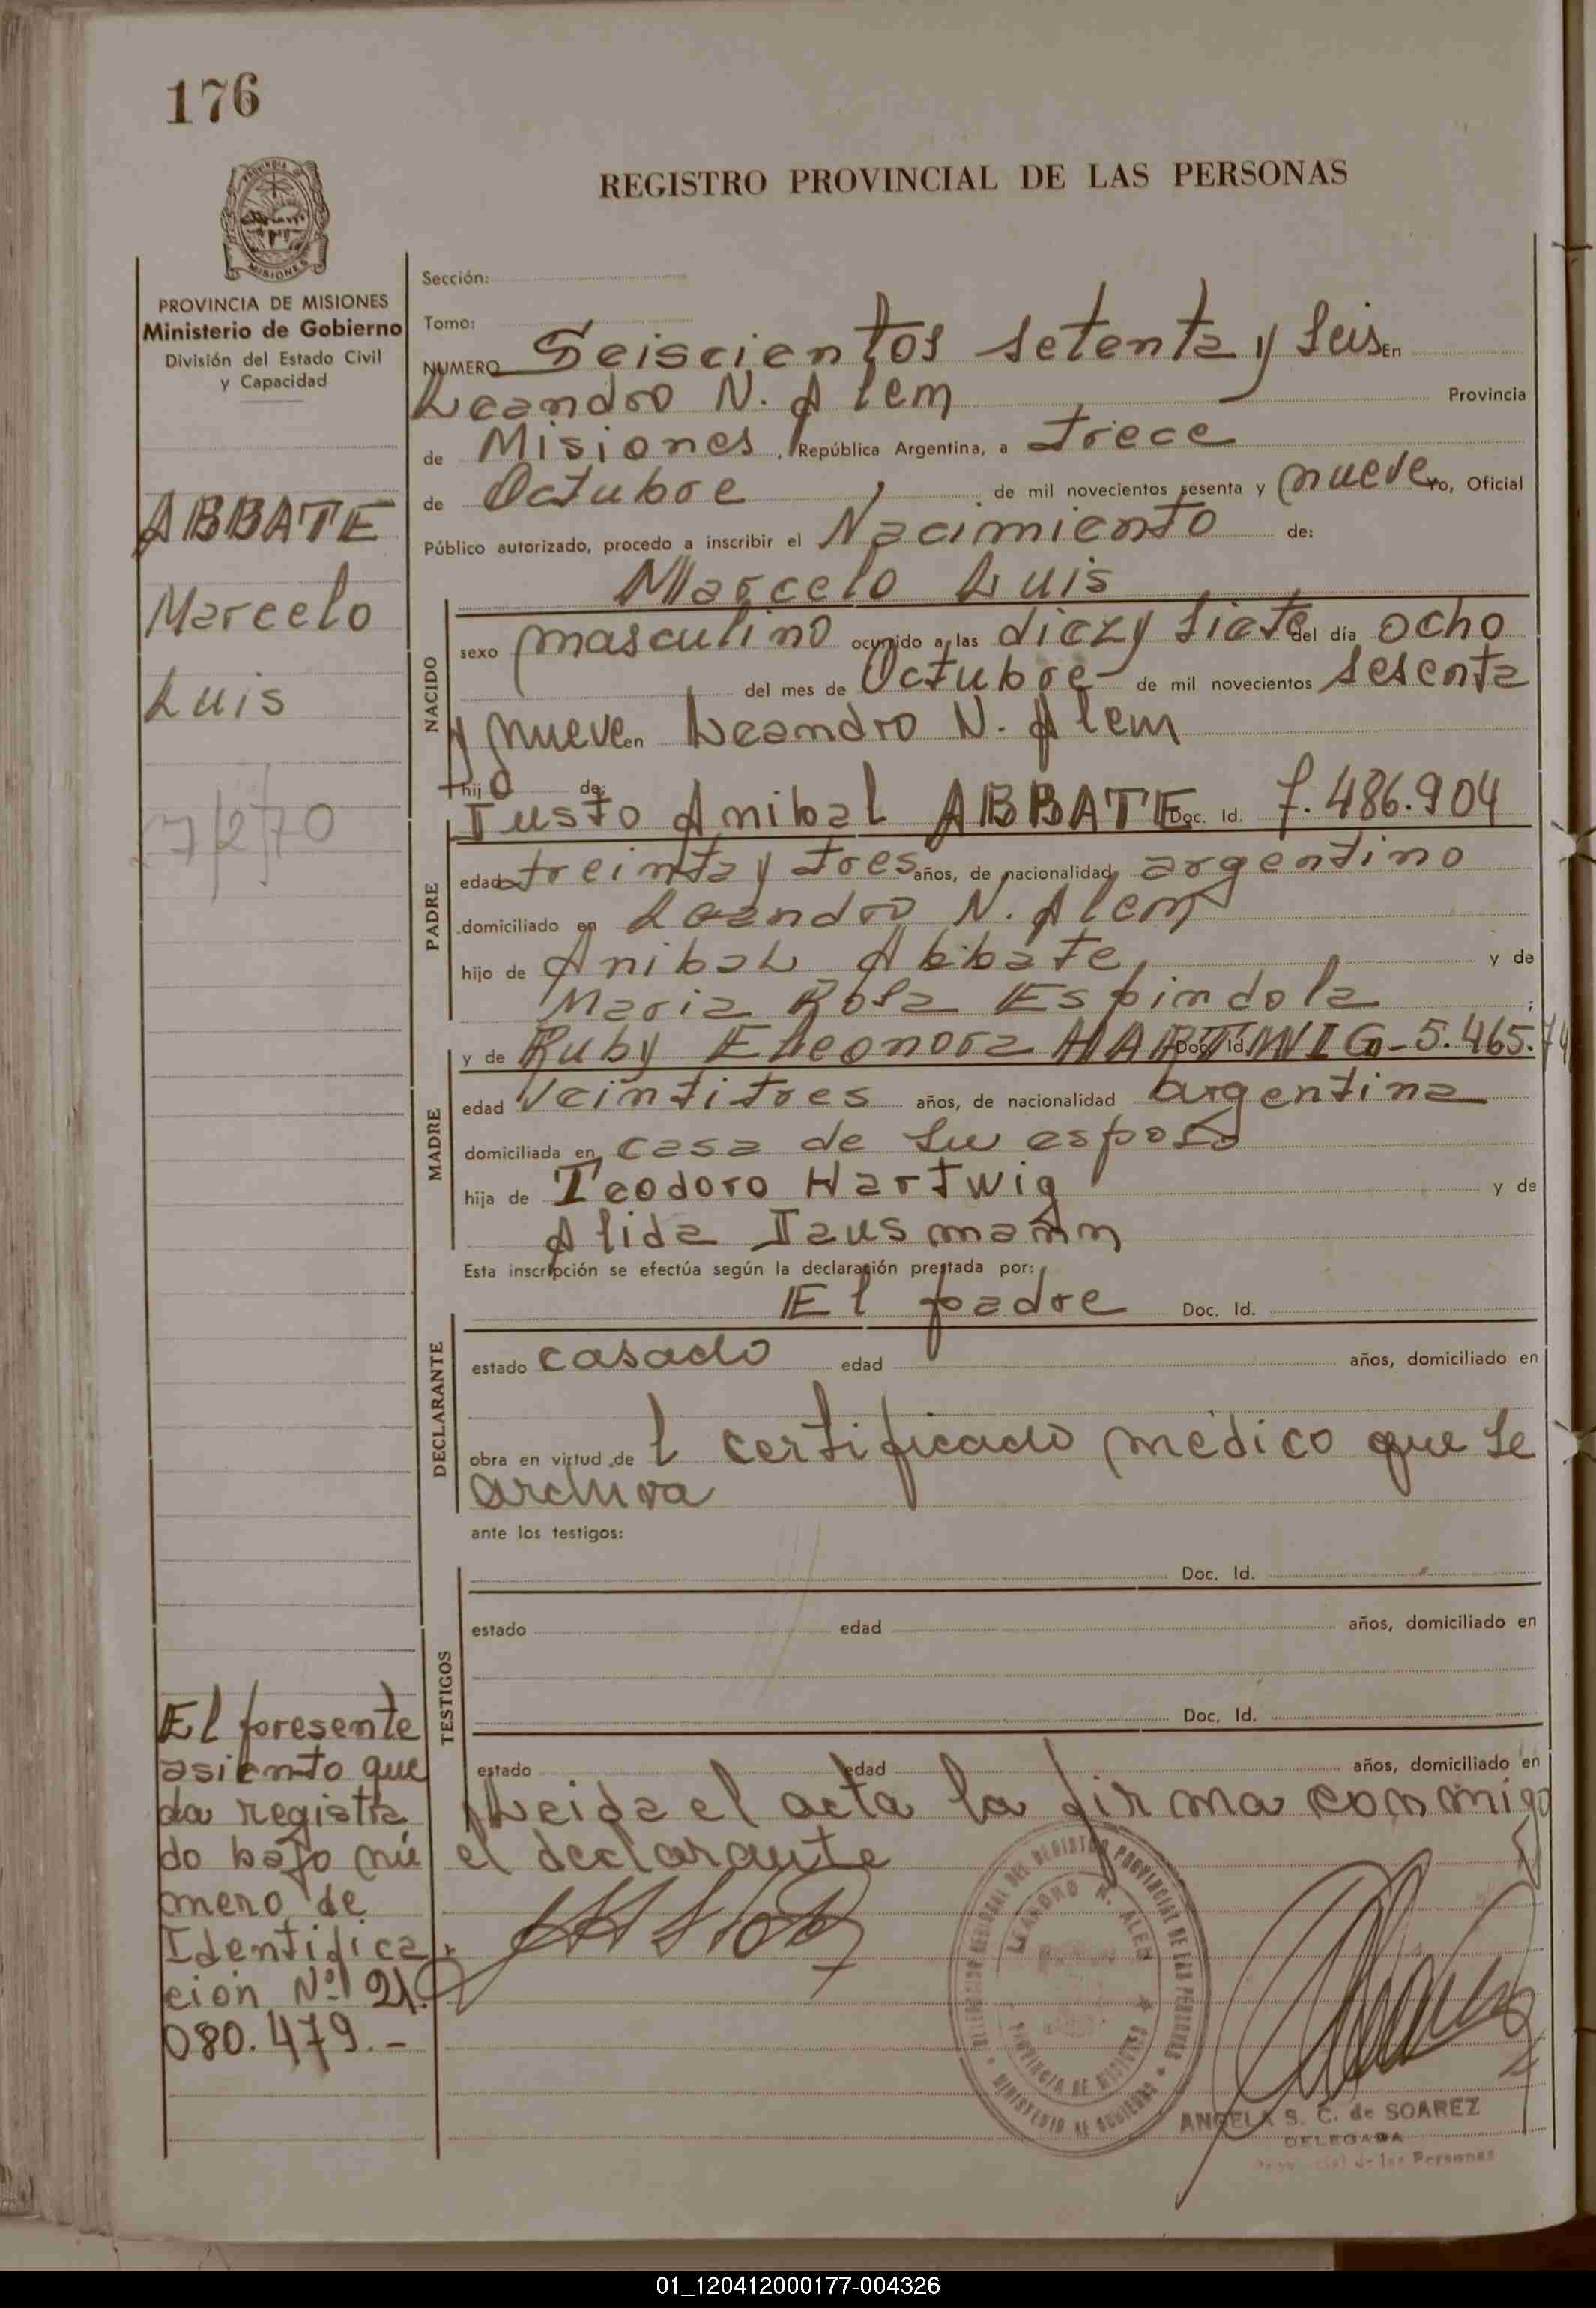 176
REGISTRO PROVINCIAL DE LAS PERSONAS
MISIONES
PROVINCIA DE MISIONES
Ministerio de Gobierno
División del Estado Civil
y Capacidad
ABBATE
Marcelo
Luis
7/2/70
Sección:
Tomo:
NUMERO Seiscientos setenta y seis En
Leandro N. Alem Provincia
de Misiones, República Argentina, a trece
de Octubre de mil novecientos sesenta y nueve Yo, Oficial
Público autorizado, procedo a inscribir el Nacimiento de:
Marcelo Luis
NACIDO
sexo masculino ocurrido a las diez y siete del día ocho
del mes de Octubre- de mil novecientos sesenta
y nueve en Leandro N. Alem
hijo de:
Justo Anibal ABBATE Doc. Id. 7.486.904
PADRE
edad treinta y tres años, de nacionalidad argentino
domiciliado en Leandro N. Alem
hijo de Anibal Abbate y de
Maria Rosa Espindola ;
MADRE
y de Ruby Eleonora HARTWIG Doc. Id. - 5.465.
edad Veintitres años, de nacionalidad argentina
domiciliada en casa de su esposo
hija de Teodoro Hartwig y de
Alida Jausmann
Esta inscripción se efectúa según la declaración prestada por:
El padre Doc. Id.
DECLARANTE
estado casado edad años, domiciliado en
obra en virtud de l certificado médico que se
archiva
ante los testigos:
TESTIGOS
Doc. Id.
estado edad años, domiciliado en
Doc. Id.
estado edad años, domiciliado en
Leida el acta la firma conmigo
el declarante
El presente
asiento que
da registra
do bajo nú
mero de
Identifica
cion Nº 21.
080.479.-
LEANDRO N. ALEM
PROVINCIA DE MISIONES
DELEGACION REGIONAL DEL REGISTRO PROVINCIAL DE LAS PERSONAS
MINISTERIO DE GOBIERNO
ANGELA S. C. de SOAREZ
DELEGADA
Provincial de las Personas
01_120412000177-004326